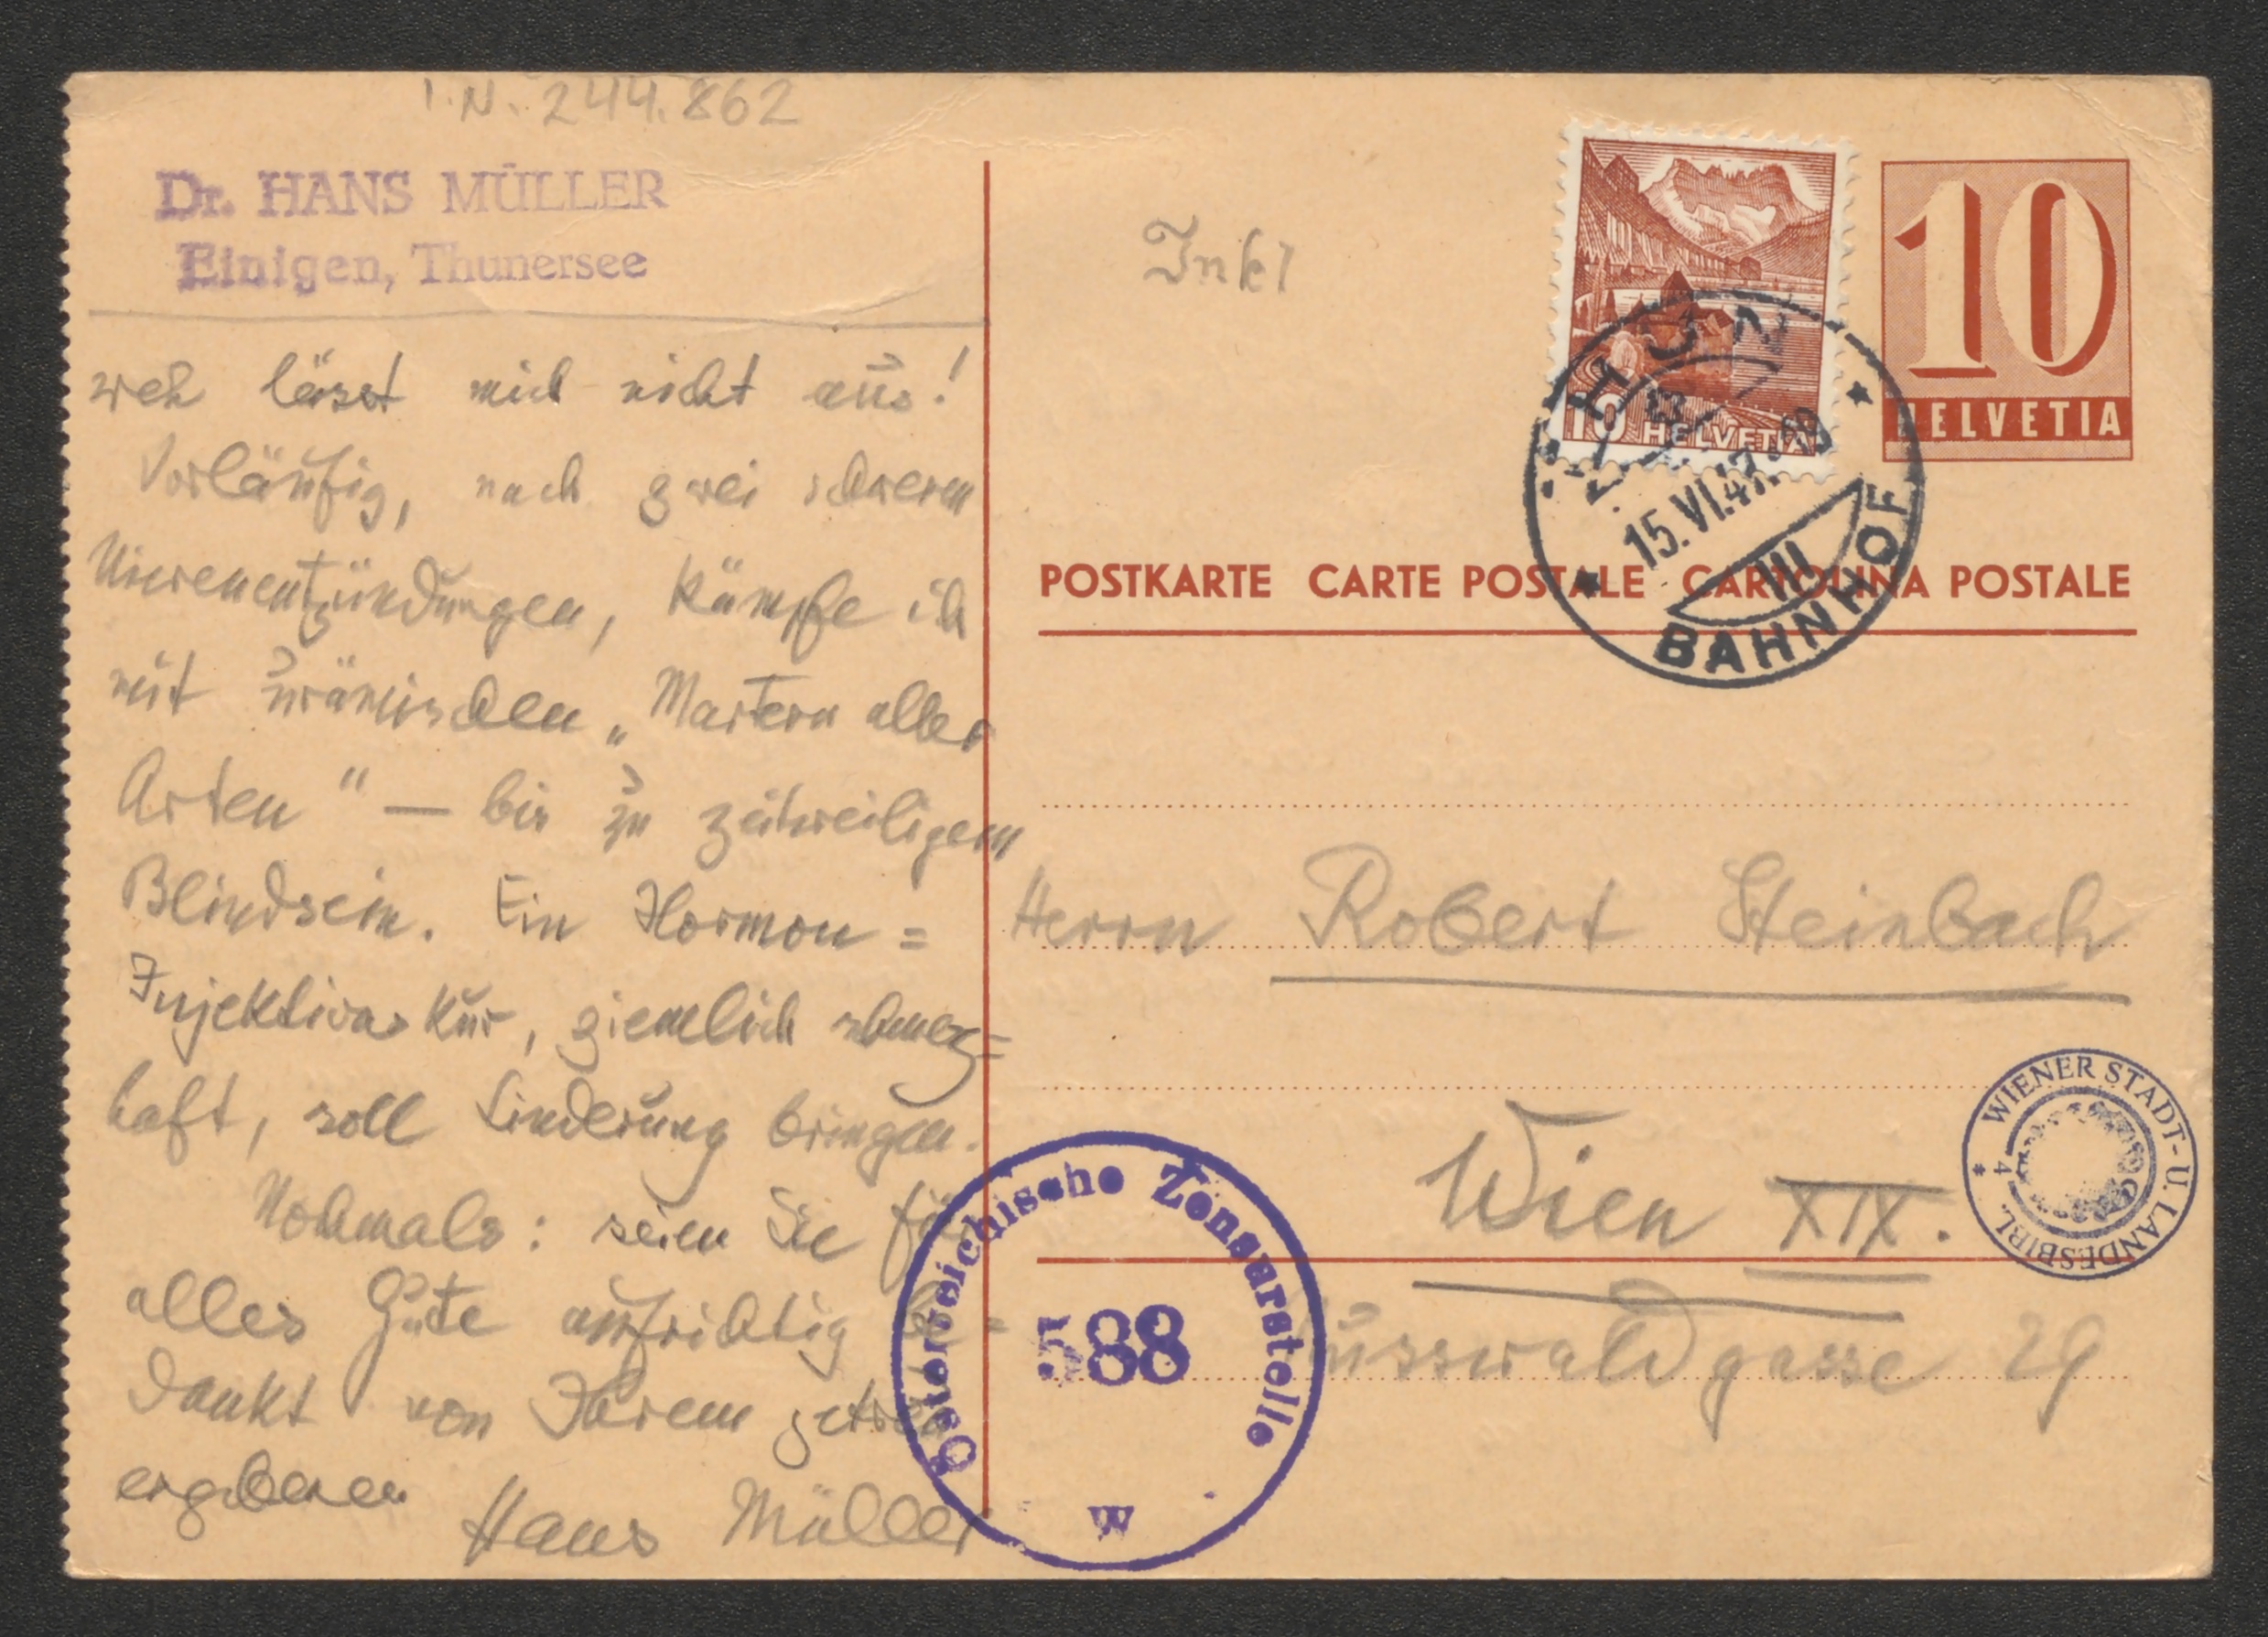 I.N. 244.862
Dr. HANS MÜLLER
Einigen, Thunersee
weh lässt mich nicht aus!
Vorläufig, nach zwei schweren
Nierenentzündungen, kämpfe ich
mit urämischen „Martern aller
Arten" — bis zu zeitweiligem
Blindsein. Ein Hormon=
Injektionskur, ziemlich schmerz=
haft, soll Linderung bringen.
Nochmals: seien Sie für
alles Gute aufrichtig be=
dankt von Ihrem getreu
ergebenen
Hans Müller
Inkl
10 HELVETIA
10
HELVETIA
THUN
15.VI.47
III
BAHNHOF
POSTKARTE CARTE POSTALE CARTOLINA POSTALE
Herrn Robert Steinbach
Wien XIX.
29
WIENER STADT- U. LANDESBIBL.
Österreichische Zensurstelle
588
W